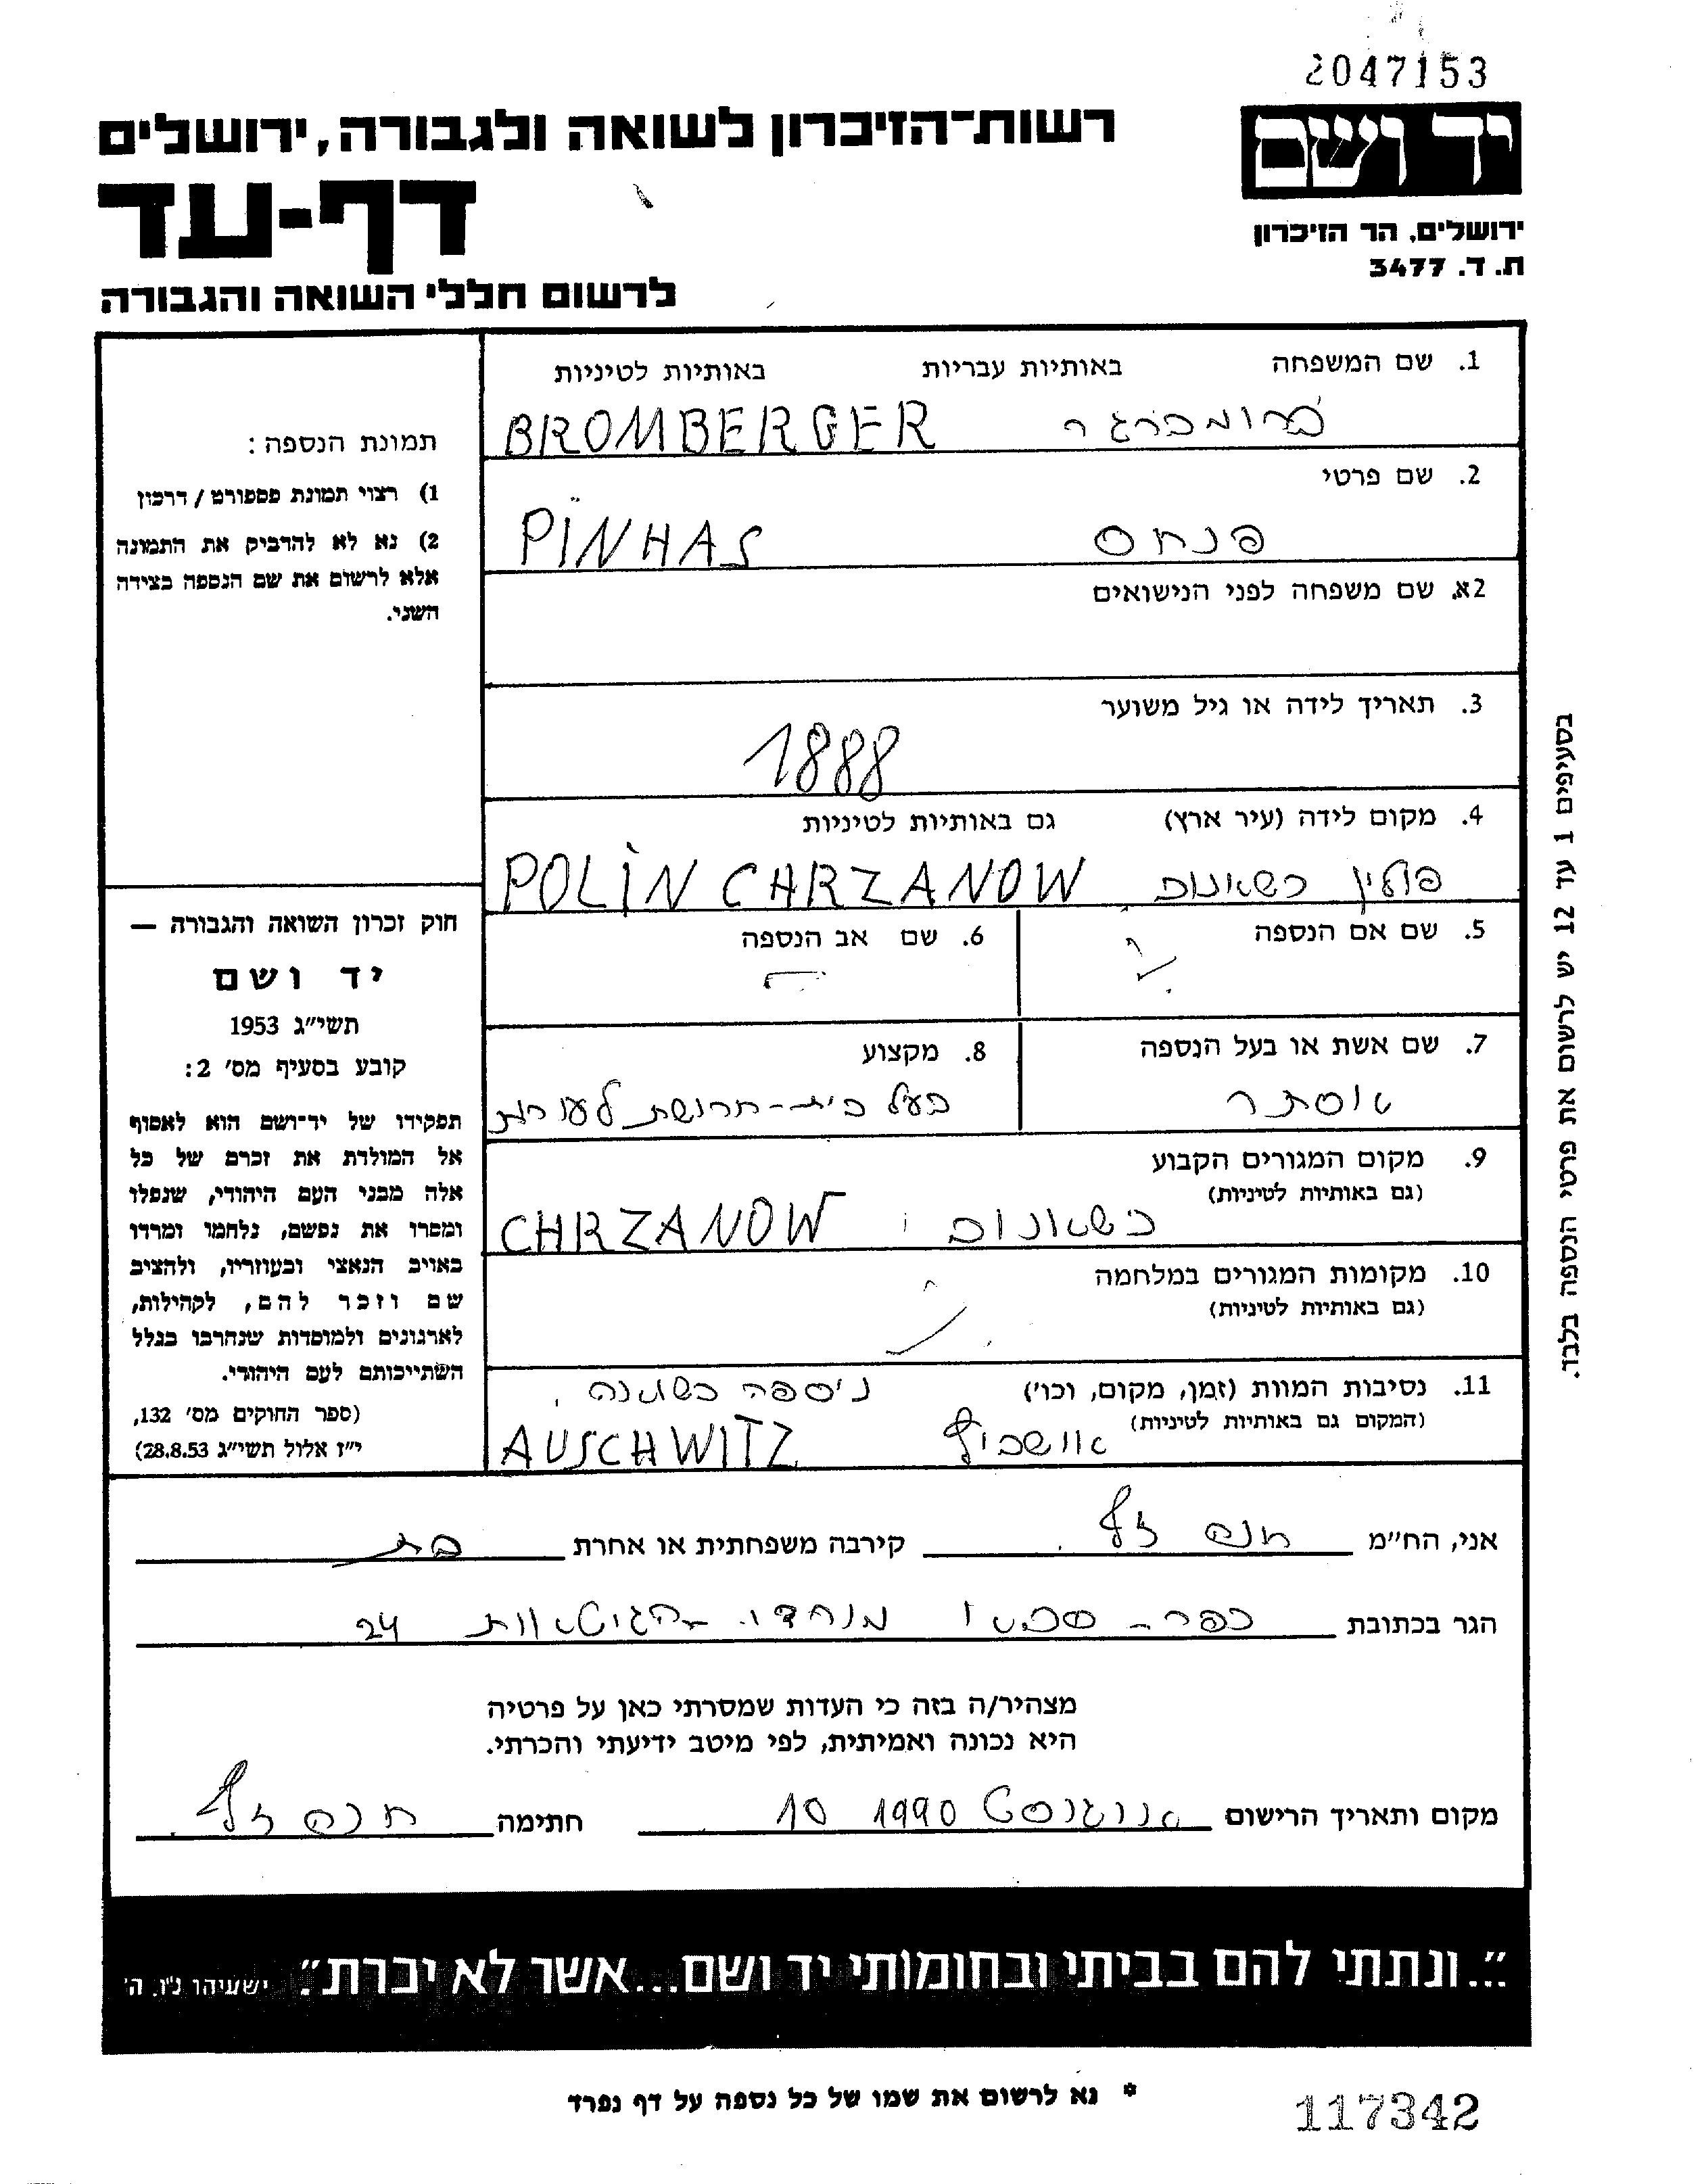 2047153
יד ושם
ירושלים, הר הזיכרון
ת. ד. 3477
רשות־הזיכרון לשואה ולגבורה, ירושלים
דף-עד
לרשום חללי השואה והגבורה
1. שם המשפחה באותיות עבריות באותיות לטיניות
ברומברגר BROMBERGER
2. שם פרטי
פנחס PINHAS
2א. שם משפחה לפני הנישואים
3. תאריך לידה או גיל משוער
1888
4. מקום לידה (עיר ארץ) גם באותיות לטיניות
פולין כשאנוב POLIN CHRZANOW
5. שם אם הנספה
6. שם אב הנספה
7. שם אשת או בעל הנספה
אסתר
8. מקצוע
בעל בית-חרושת לעורות
9. מקום המגורים הקבוע
(גם באותיות לטיניות)
כשאנוב CHRZANOW
10. מקומות המגורים במלחמה
(גם באותיות לטיניות)
11. נסיבות המוות (זמן, מקום, וכו')
(המקום גם באותיות לטיניות)
ניספה
AUSCHWITZ
תמונת הנספה:
1) רצוי תמונת פספורט / דרכון
2) נא לא להדביק את התמונה
אלא לרשום את שם הנספה בצידה
השני.
חוק זכרון השואה והגבורה —
יד ושם
תשי״ג 1953
קובע בסעיף מס׳ 2:
תפקידו של יד־ושם הוא לאסוף
אל המולדת את זכרם של כל
אלה מבני העם היהודי, שנפלו
ומסרו את נפשם, נלחמו ומרדו
באויב הנאצי ובעוזריו, ולהציב
שם וזכר להם, לקהילות,
לארגונים ולמוסדות שנחרבו בגלל
השתייכותם לעם היהודי.
(ספר החוקים מס׳ 132,
י״ז אלול תשי״ג 28.8.53)
בסעיפים 1 עד 12 יש לרשום את פרטי הנספה בלבד.
אני, הח״מ חנה קירבה משפחתית או אחרת בת
הגר בכתובת כפר-סבא הגיטאות 24
מצהיר/ה בזה כי העדות שמסרתי כאן על פרטיה
היא נכונה ואמיתית, לפי מיטב ידיעתי והכרתי.
מקום ותאריך הרישום אוגוסט 1990 10 חתימה חנה
"...ונתתי להם בביתי ובחומותי יד ושם...אשר לא יכרת". ישעיהו נ״ו, ה׳
* נא לרשום את שמו של כל נספה על דף נפרד
117342